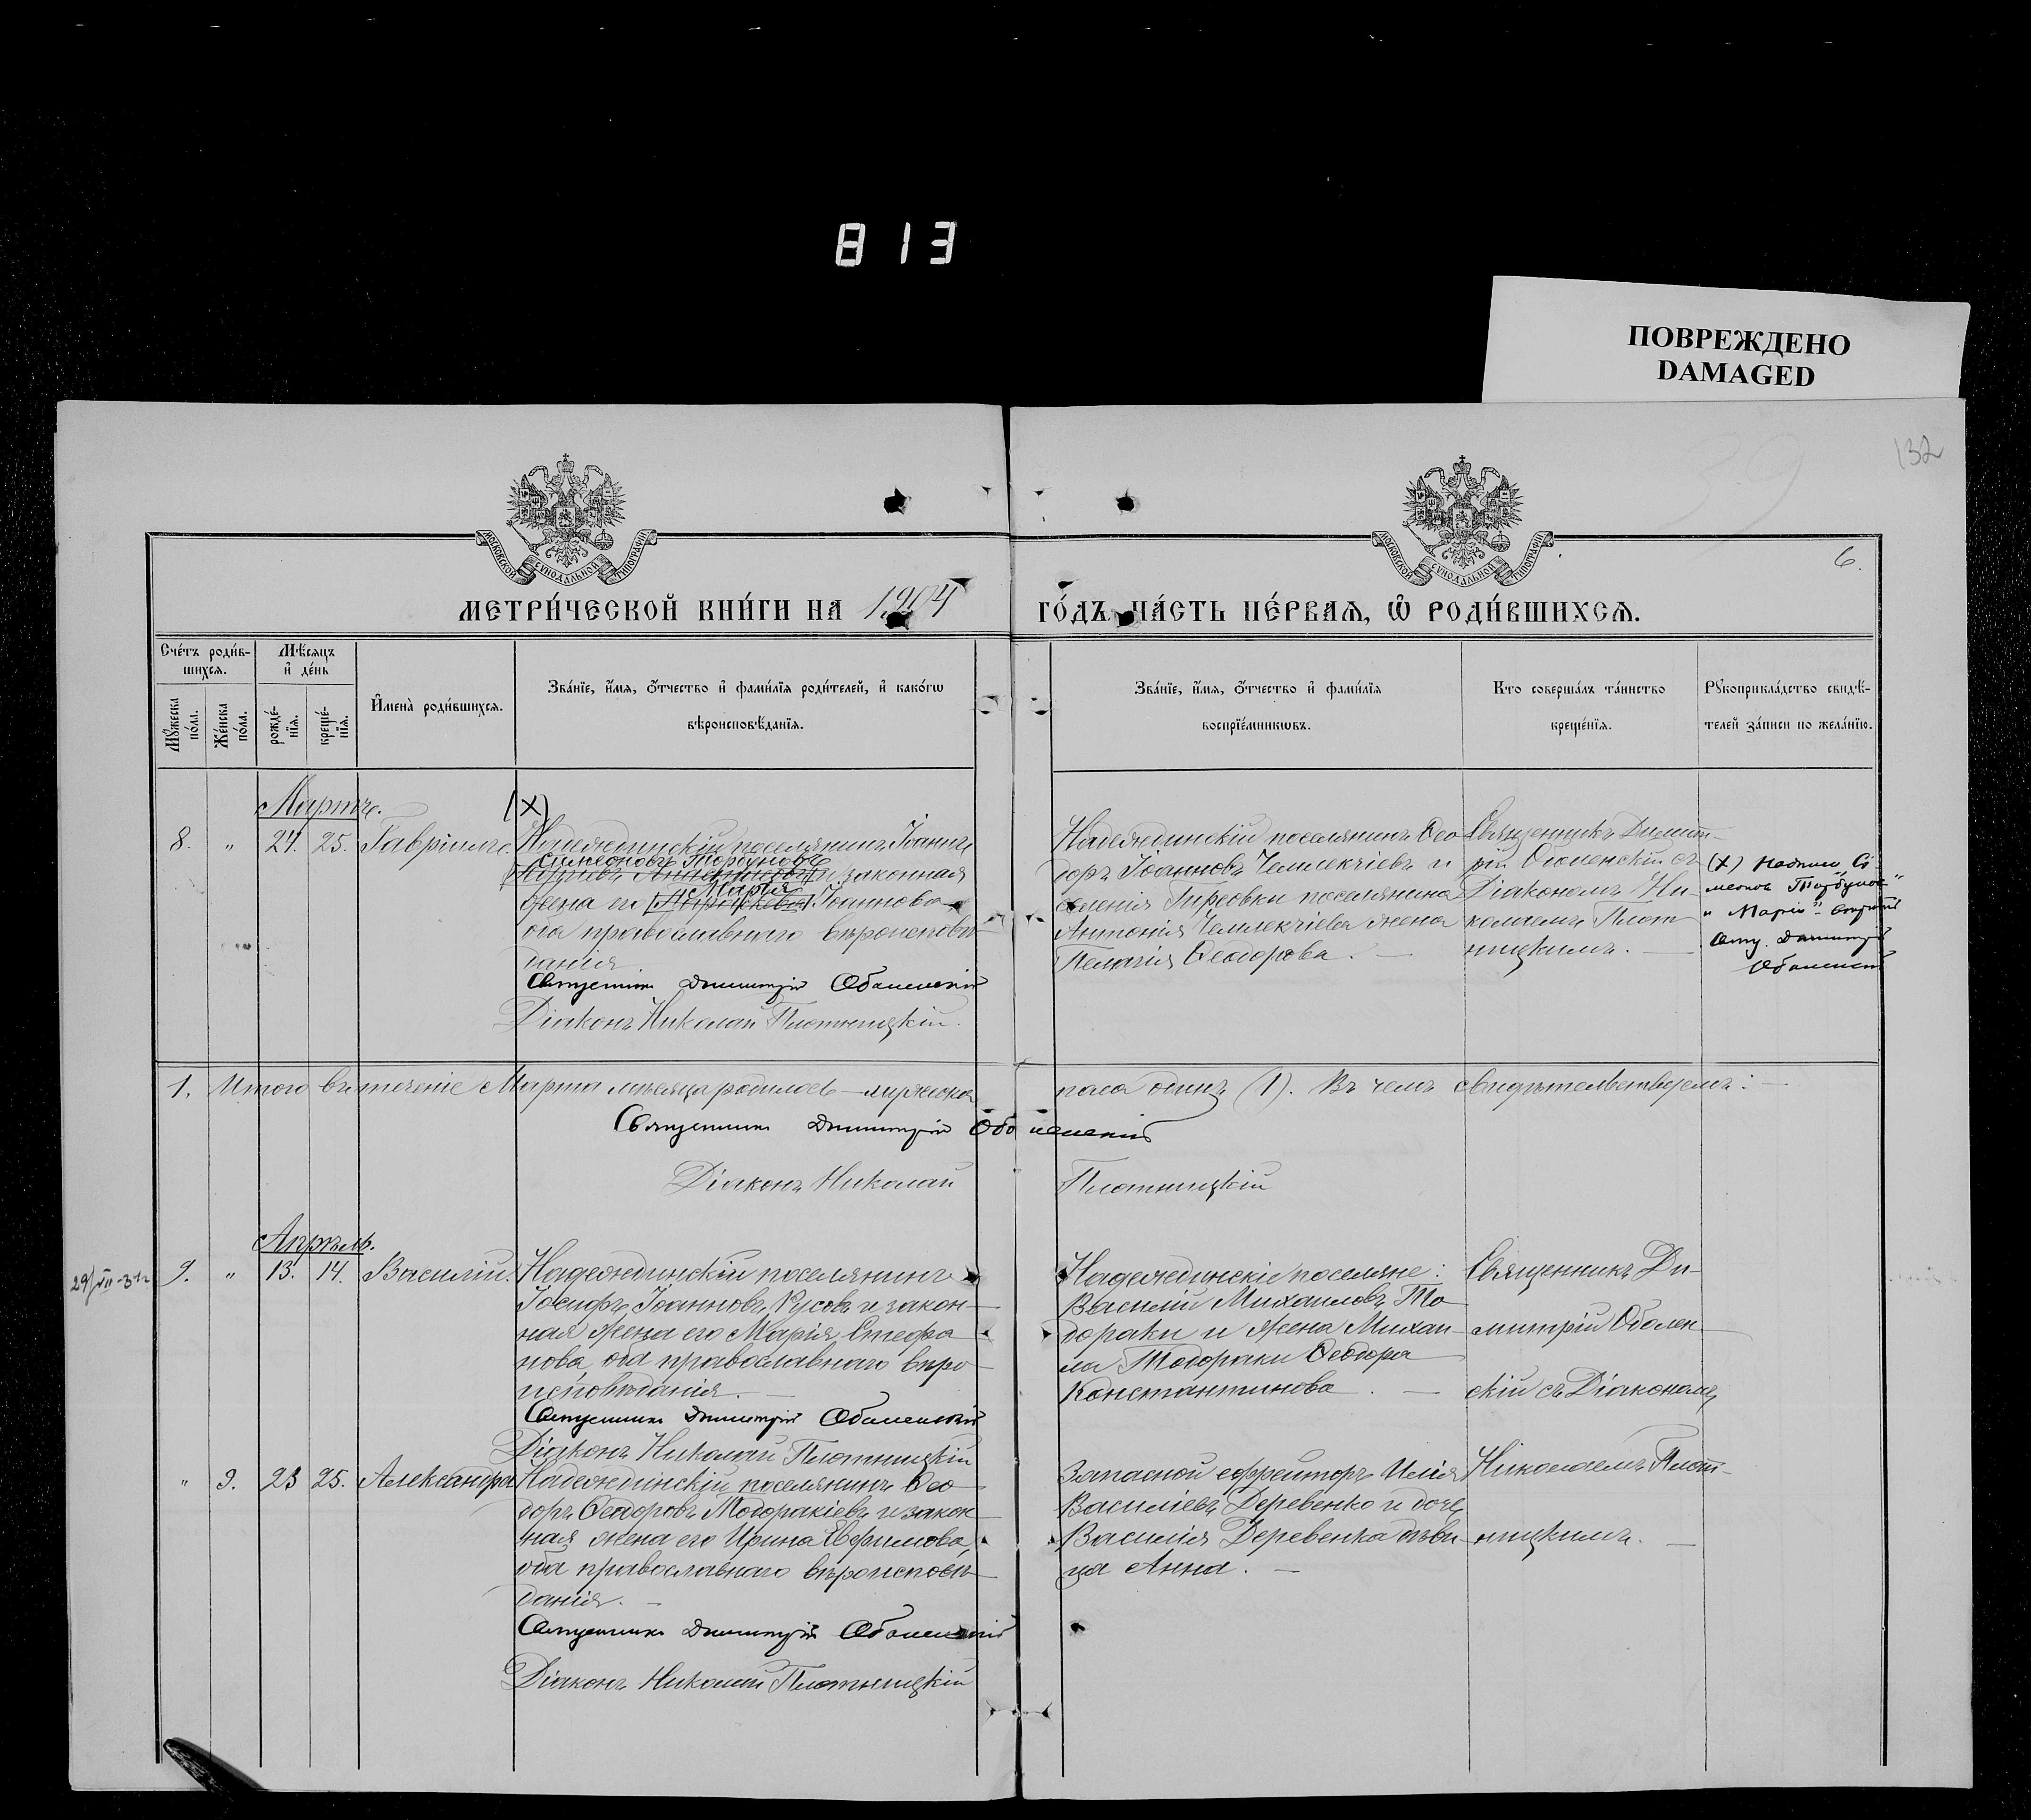 813
ПОВРЕЖДЕНО
DAMAGED
132
6.
МОСКОВСКОЙ СУНОДАЛЬНОЙ ТИПОГРАФІИ
МОСКОВСКОЙ СУНОДАЛЬНОЙ ТИПОГРАФІИ
МЕТРИ́ЧЕСКОЙ КНИ́ГИ НА 1904 ГО́ДЪ ЧА́СТЬ ПЕ́РВАЯ, Ѽ РОДИ́ВШИХСЯ.
Сче́тъ роди́в-
шихся.
Мѣ́сяцъ
и҆ де́нь
Мꙋ́жеска по́ла.
Же́нска по́ла.
рожде́-
нїя.
креще́-
нїя.
И҆мена̀ роди́вшихся.
Зва́нїе, и҆́мя, ѻ҆́тчество и҆ фами́лїя роди́телей, и҆ како́гѡ
вѣроисповѣ́данїя.
Зва́нїе, и҆́мя, ѻ҆́тчество и҆ фами́лїя
воспрїе́мникѡвъ.
Кто̀ соверша́лъ та́инство
креще́нїя.
Рꙋкоприкла́дство свидѣ́-
телей за́писи по жела́нїю.
Мартъ.
(X)
8. " 24. 25. Гавріилъ.
Надеждинскій поселянинъ Іоаннъ
Симеоновъ Торбуновъ
и законная
жена его Марія Іоаннова
оба православнаго вѣроисповѣ-
данія
Священникъ Димитрій Оболенскій
Діаконъ Николай Плотницкій.
Надеждинскій поселянинъ Ѳео-
доръ Іоанновъ Челмекчіевъ и
селенія Гирсовки поселянина
Антонія Челмекчіева жена
Пелагія Ѳеодорова. —
Священникъ Димит-
рій Оболенскій съ
Діакономъ Ни-
колаемъ Плот-
ницкимъ. —
(X) Надпись „Си-
меоновъ Торбуновъ"
„Марія"
Свящ. Димитрій
Оболенскій
1. Итого въ теченіе Марта мѣсяца родилось мужеска пола одинъ (1). Въ чемъ свидѣтельствуемъ: —
Священникъ Димитрій Оболенскій
Діаконъ Николай Плотницкій
Апрѣль.
9. " 13. 14. Василій.
Надеждинскій поселянинъ
Іосифъ Іоанновъ Русовъ и закон-
ная жена его Марія Стефа-
нова, оба православнаго вѣро-
исповѣданія. —
Священникъ Димитрій Оболенскій
Діаконъ Николай Плотницкій
Надеждинскіе поселяне:
Василій Михаиловъ То-
дораки и жена Михаи-
ла Тодораки Ѳеодора
Константинова. —
Священникъ Ди-
митрій Оболен-
скій съ Діакономъ
" 9. 23 25. Александра
Надеждинскій поселянинъ Ѳео-
доръ Ѳеодоровъ Модоракіевъ и закон-
ная жена его Ирина Евфимова,
оба православнаго вѣроисповѣ-
данія. —
Священникъ Димитрій Оболенскій
Діаконъ Николай Плотницкій
Запасной ефрейторъ Илія
Василіевъ Деревенко и дочь
Василія Деревенка дѣви-
ца Анна. —
Николаемъ Плот-
ницкимъ. —